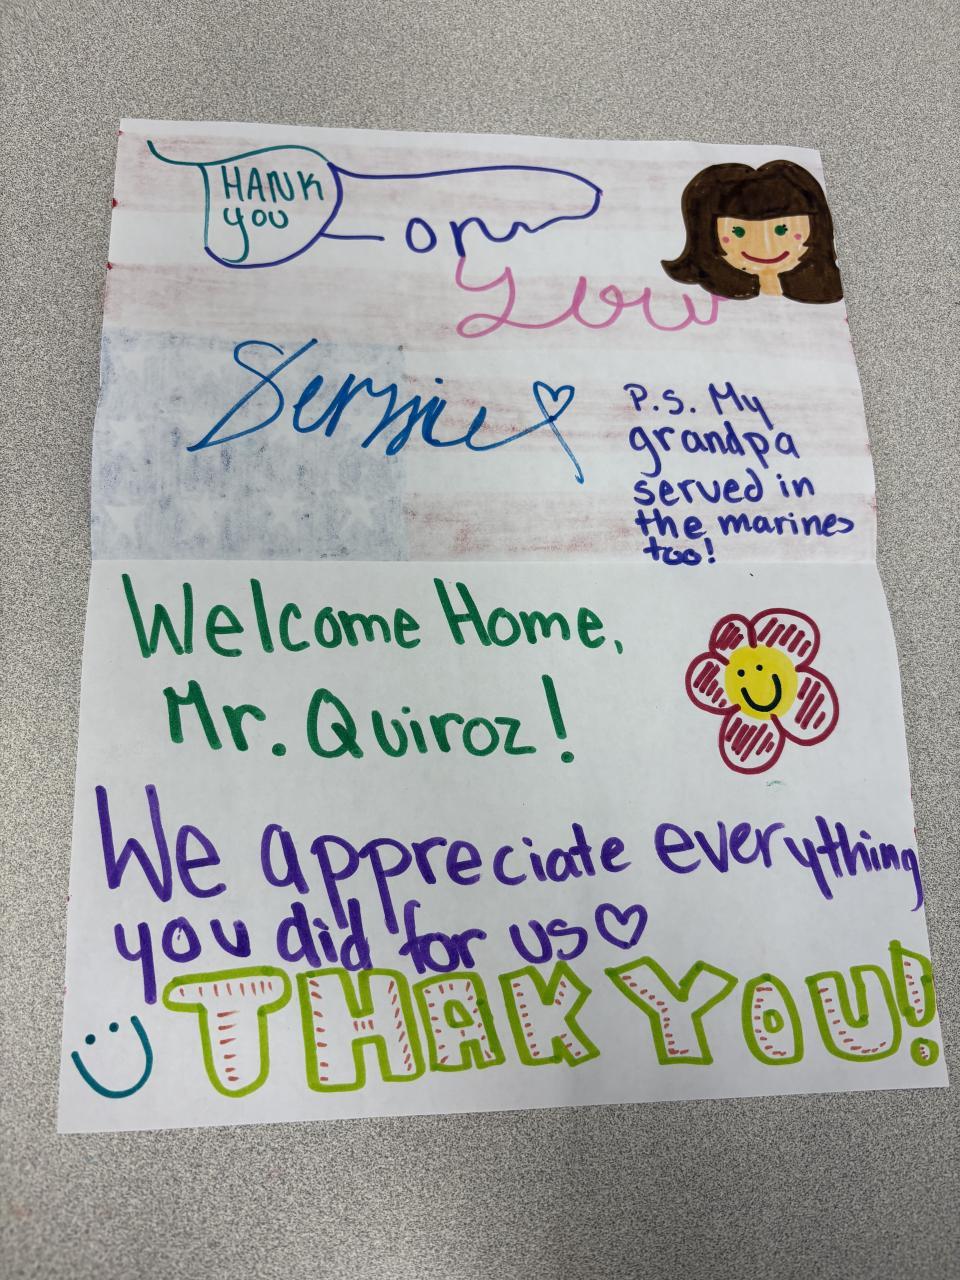 THANK
you
for
your
Service
P.S. My
grandpa
served in
the marines
too!
Welcome Home,
Mr. Quiroz!
We appreciate everything
you did for us♡
THANK YOU!